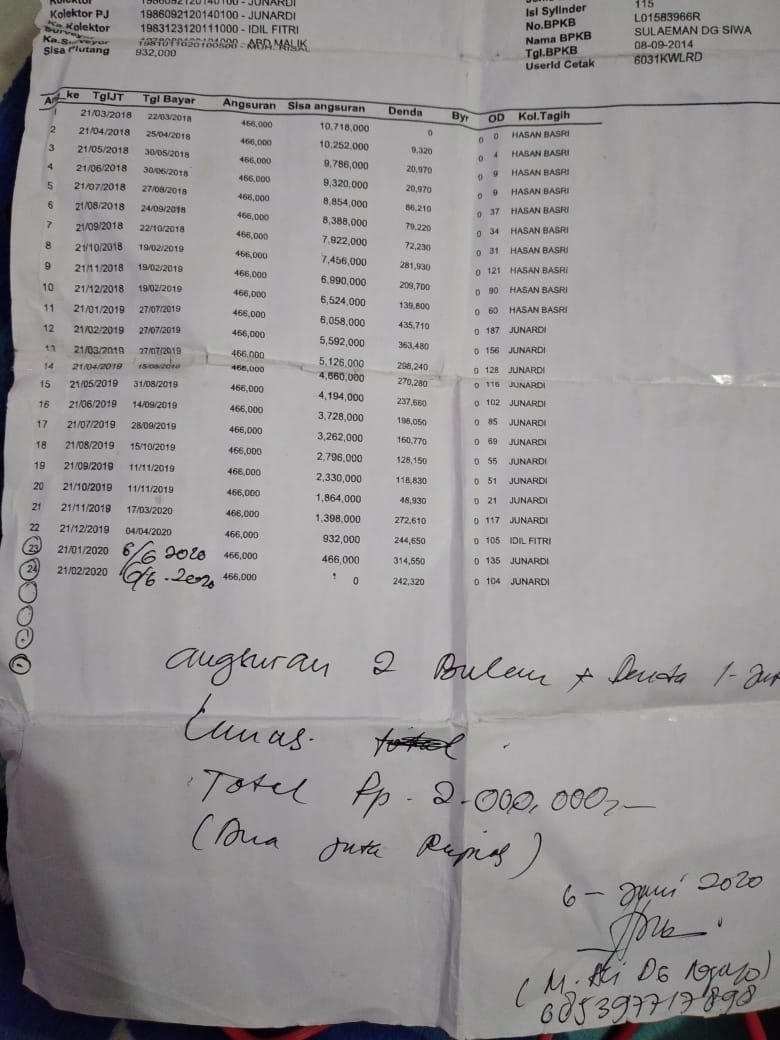 Kolektor 1986092120140100 - JUNARDI
Kolektor PJ 1986092120140100 - JUNARDI
Ka.Kolektor 1983123120111000 - IDIL FITRI
Surveyor
Ka.Surveyor
Sisa Piutang 932,000
115
Isi Sylinder L01583966R
No.BPKB SULAEMAN DG SIWA
Nama BPKB 08-09-2014
Tgl.BPKB 6031KWLRD
UserId Cetak
Ang ke TglJT Tgl Bayar Angsuran Sisa angsuran Denda Byr OD Kol.Tagih
1 21/03/2018 22/03/2018 466,000 10,718,000 0 0 0 HASAN BASRI
2 21/04/2018 25/04/2018 466,000 10,252,000 9,320 0 4 HASAN BASRI
3 21/05/2018 30/05/2018 466,000 9,786,000 20,970 0 9 HASAN BASRI
4 21/06/2018 30/06/2018 466,000 9,320,000 20,970 0 9 HASAN BASRI
5 21/07/2018 27/08/2018 466,000 8,854,000 86,210 0 37 HASAN BASRI
6 21/08/2018 24/09/2018 466,000 8,388,000 79,220 0 34 HASAN BASRI
7 21/09/2018 22/10/2018 466,000 7,922,000 72,230 0 31 HASAN BASRI
8 21/10/2018 19/02/2019 466,000 7,456,000 281,930 0 121 HASAN BASRI
9 21/11/2018 19/02/2019 466,000 6,990,000 209,700 0 90 HASAN BASRI
10 21/12/2018 19/02/2019 466,000 6,524,000 139,800 0 60 HASAN BASRI
11 21/01/2019 27/07/2019 466,000 6,058,000 435,710 0 187 JUNARDI
12 21/02/2019 27/07/2019 466,000 5,592,000 363,480 0 156 JUNARDI
13 21/03/2019 27/07/2019 466,000 5,126,000 298,240 0 128 JUNARDI
14 21/04/2019 15/08/2019 466,000 4,660,000 270,280 0 116 JUNARDI
15 21/05/2019 31/08/2019 466,000 4,194,000 237,660 0 102 JUNARDI
16 21/06/2019 14/09/2019 466,000 3,728,000 198,050 0 85 JUNARDI
17 21/07/2019 28/09/2019 466,000 3,262,000 160,770 0 69 JUNARDI
18 21/08/2019 15/10/2019 466,000 2,796,000 128,150 0 55 JUNARDI
19 21/09/2019 11/11/2019 466,000 2,330,000 118,830 0 51 JUNARDI
20 21/10/2019 11/11/2019 466,000 1,864,000 48,930 0 21 JUNARDI
21 21/11/2019 17/03/2020 466,000 1,398,000 272,610 0 117 JUNARDI
22 21/12/2019 04/04/2020 466,000 932,000 244,650 0 105 IDIL FITRI
23 21/01/2020 6/6 2020 466,000 466,000 314,550 0 135 JUNARDI
24 21/02/2020 6/6 - 2020 466,000 0 242,320 0 104 JUNARDI
angsuran 2 Bulan + Denda 1-Jut
Lunas. total
Total Rp. 2.000.000,-
(Dua juta Rupiah)
6 - Juni 2020
085397717898